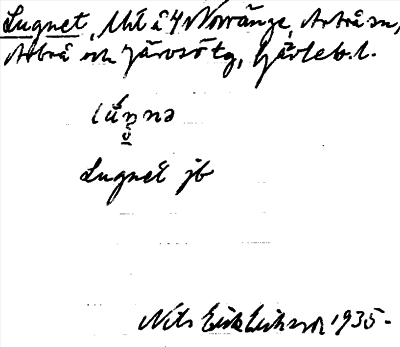 Lugnet, lht å 4 Norränge, Arbrå sn,
Arbrå och Järvsö tg, Gävleb. l.
Lugnet jb
Nils Erik Eriksson 1935.